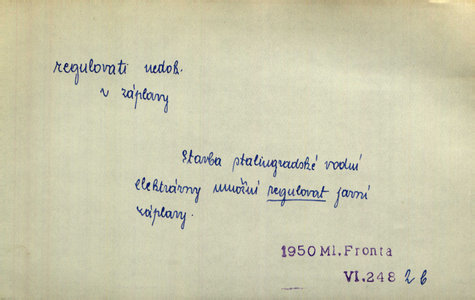 regulovati nedok.
v záplavy
Stavba stalingradské vodní
elektrárny umožní regulovat jarní
záplavy.
1950 Ml. Fronta
VI. 248 2 b